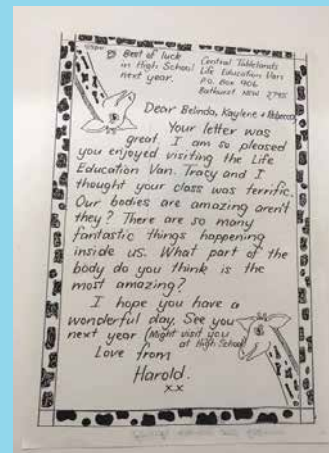 Best of luck
in High School
next year.
Central Tablelands
Life Education Van
P.O. Box 906
Bathurst NSW 2795
Dear Belinda, Kaylene + Rebecca
Your letter was
great. I am so pleased
you enjoyed visiting the Life
Education Van. Tracy and I
thought your class was terrific.
Our bodies are amazing aren't
they? There are so many
fantastic things happening
inside us. What part of the
body do you think is the
most amazing?
I hope you have a
wonderful day. See you
next year (Might visit you
at High School)
Love from
Harold.
xx